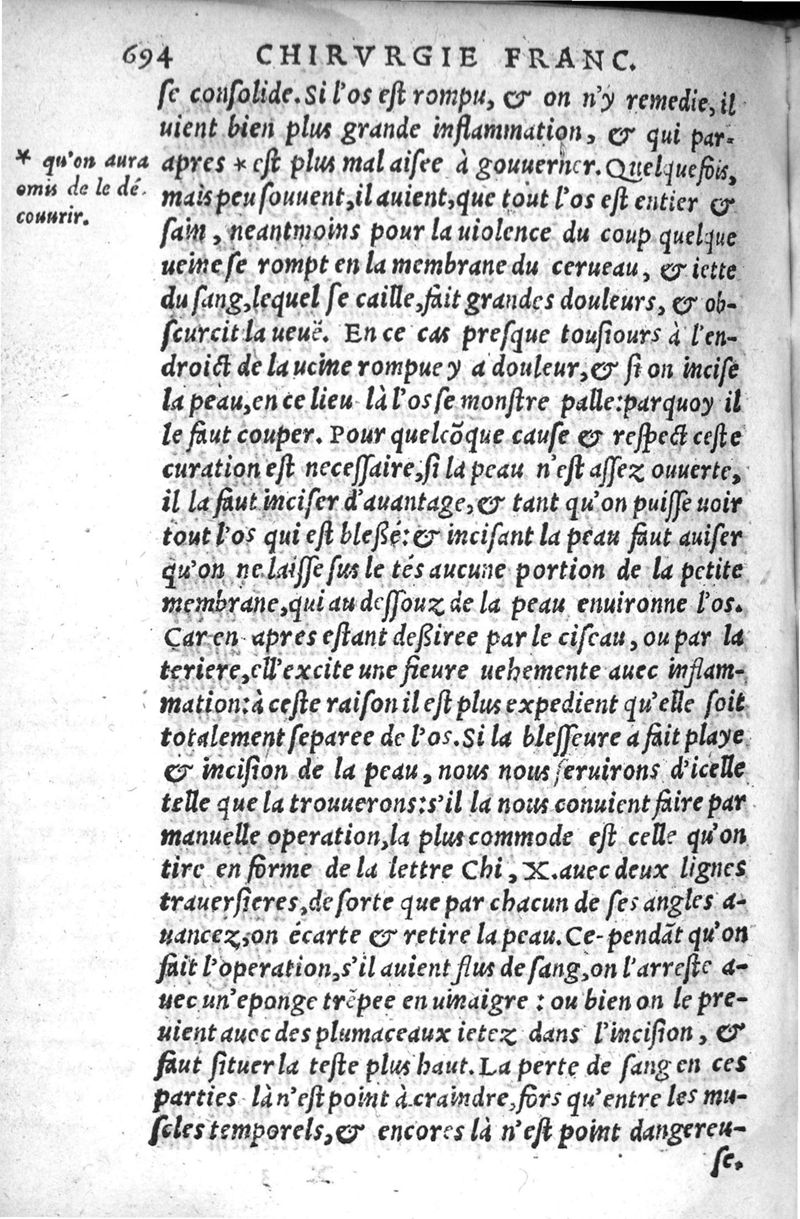 694 CHIRVRGIE FRANC.
ſe conſolide. Si l'os eſt rompu, & on n'y remedie, il
uient bien plus grande inflammation, & qui par-
* qu'on aura
omis de le dé-
couurir.
apres * eſt plus mal aiſee à gouuerner. Quelquefois,
mais peu ſouuent, il auient, que tout l'os eſt entier &
ſain, neantmoins pour la uiolence du coup quelque
ueine ſe rompt en la membrane du cerueau, & iette
du ſang, lequel ſe caille, fait grandes douleurs, & ob-
ſcurcit la ueuë. En ce cas preſque touſiours à l'en-
droict de la ueine rompue y a douleur, & ſi on inciſe
la peau, en ce lieu là l'os ſe monſtre palle: parquoy il
le faut couper. Pour quelcõque cauſe & reſpect ceſte
curation eſt neceſſaire, ſi la peau n'eſt aſſez ouuerte,
il la faut inciſer d'auantage, & tant qu'on puiſſe uoir
tout l'os qui eſt bleßé: & inciſant la peau faut auiſer
qu'on ne laiſſe ſus le tés aucune portion de la petite
membrane, qui au deſſouz de la peau enuironne l'os.
Car en apres eſtant deßiree par le ciſeau, ou par la
teriere, ell'excite une fieure uehemente auec inflam-
mation: à ceſte raiſon il eſt plus expedient qu'elle ſoit
totalement ſeparee de l'os. Si la bleſſeure a fait playe
& inciſion de la peau, nous nous ſeruirons d'icelle
telle que la trouuerons: s'il la nous conuient faire par
manuelle operation, la plus commode eſt celle qu'on
tire en forme de la lettre Chi, X. auec deux lignes
trauerſieres, de ſorte que par chacun de ſes angles a-
uancez, on écarte & retire la peau. Ce-pendãt qu'on
fait l'operation, s'il auient flus de ſang, on l'arreſte a-
uec un'eponge trẽpee en uinaigre: ou bien on le pre-
uient auec des plumaceaux ietez dans l'inciſion, &
faut ſituer la teſte plus haut. La perte de ſang en ces
parties là n'eſt point à craindre, fors qu'entre les mu-
ſcles temporels, & encores là n'eſt point dangereu-
ſe.